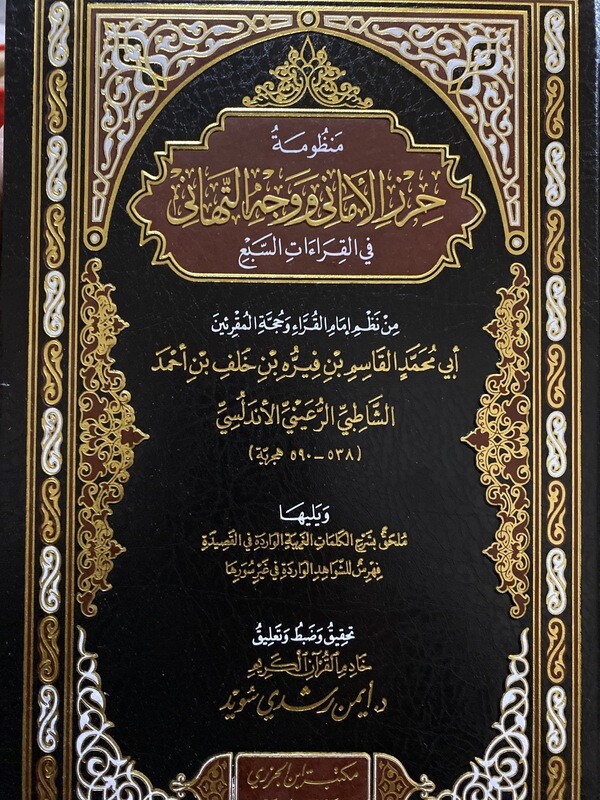 مَنْظُومَةُ
حِرْزِ الأَمَانِي وَوَجْهِ التَّهَانِي
فِي القِرَاءَاتِ السَّبْعِ
مِنْ نَظْمِ إِمَامِ القُرَّاءِ وَحُجَّةِ المُقْرِئِينَ
أَبِي مُحَمَّدٍ القَاسِمِ بْنِ فِيرُّهْ بْنِ خَلَفِ بْنِ أَحْمَدَ
الشَّاطِبِيِّ الرُّعَيْنِيِّ الأَنْدَلُسِيِّ
(٥٣٨ - ٥٩٠ هجرية)
وَيَلِيهَا
مُلْحَقٌ بشَرْحِ الكَلِمَاتِ الغَرِيبَةِ الوَارِدَةِ فِي القَصِيدَةِ
فِهْرِسٌ لِلشَّوَاهِدِ الوَارِدَةِ فِي غَيْرِ سُوَرِهَا
تَحْقِيقُ وَضَبْطُ وَتَعْلِيقُ
خَادِمِ القُرْآنِ الكَرِيمِ
د. أيمن رشدي سويد
مكتبة ابن الجزري